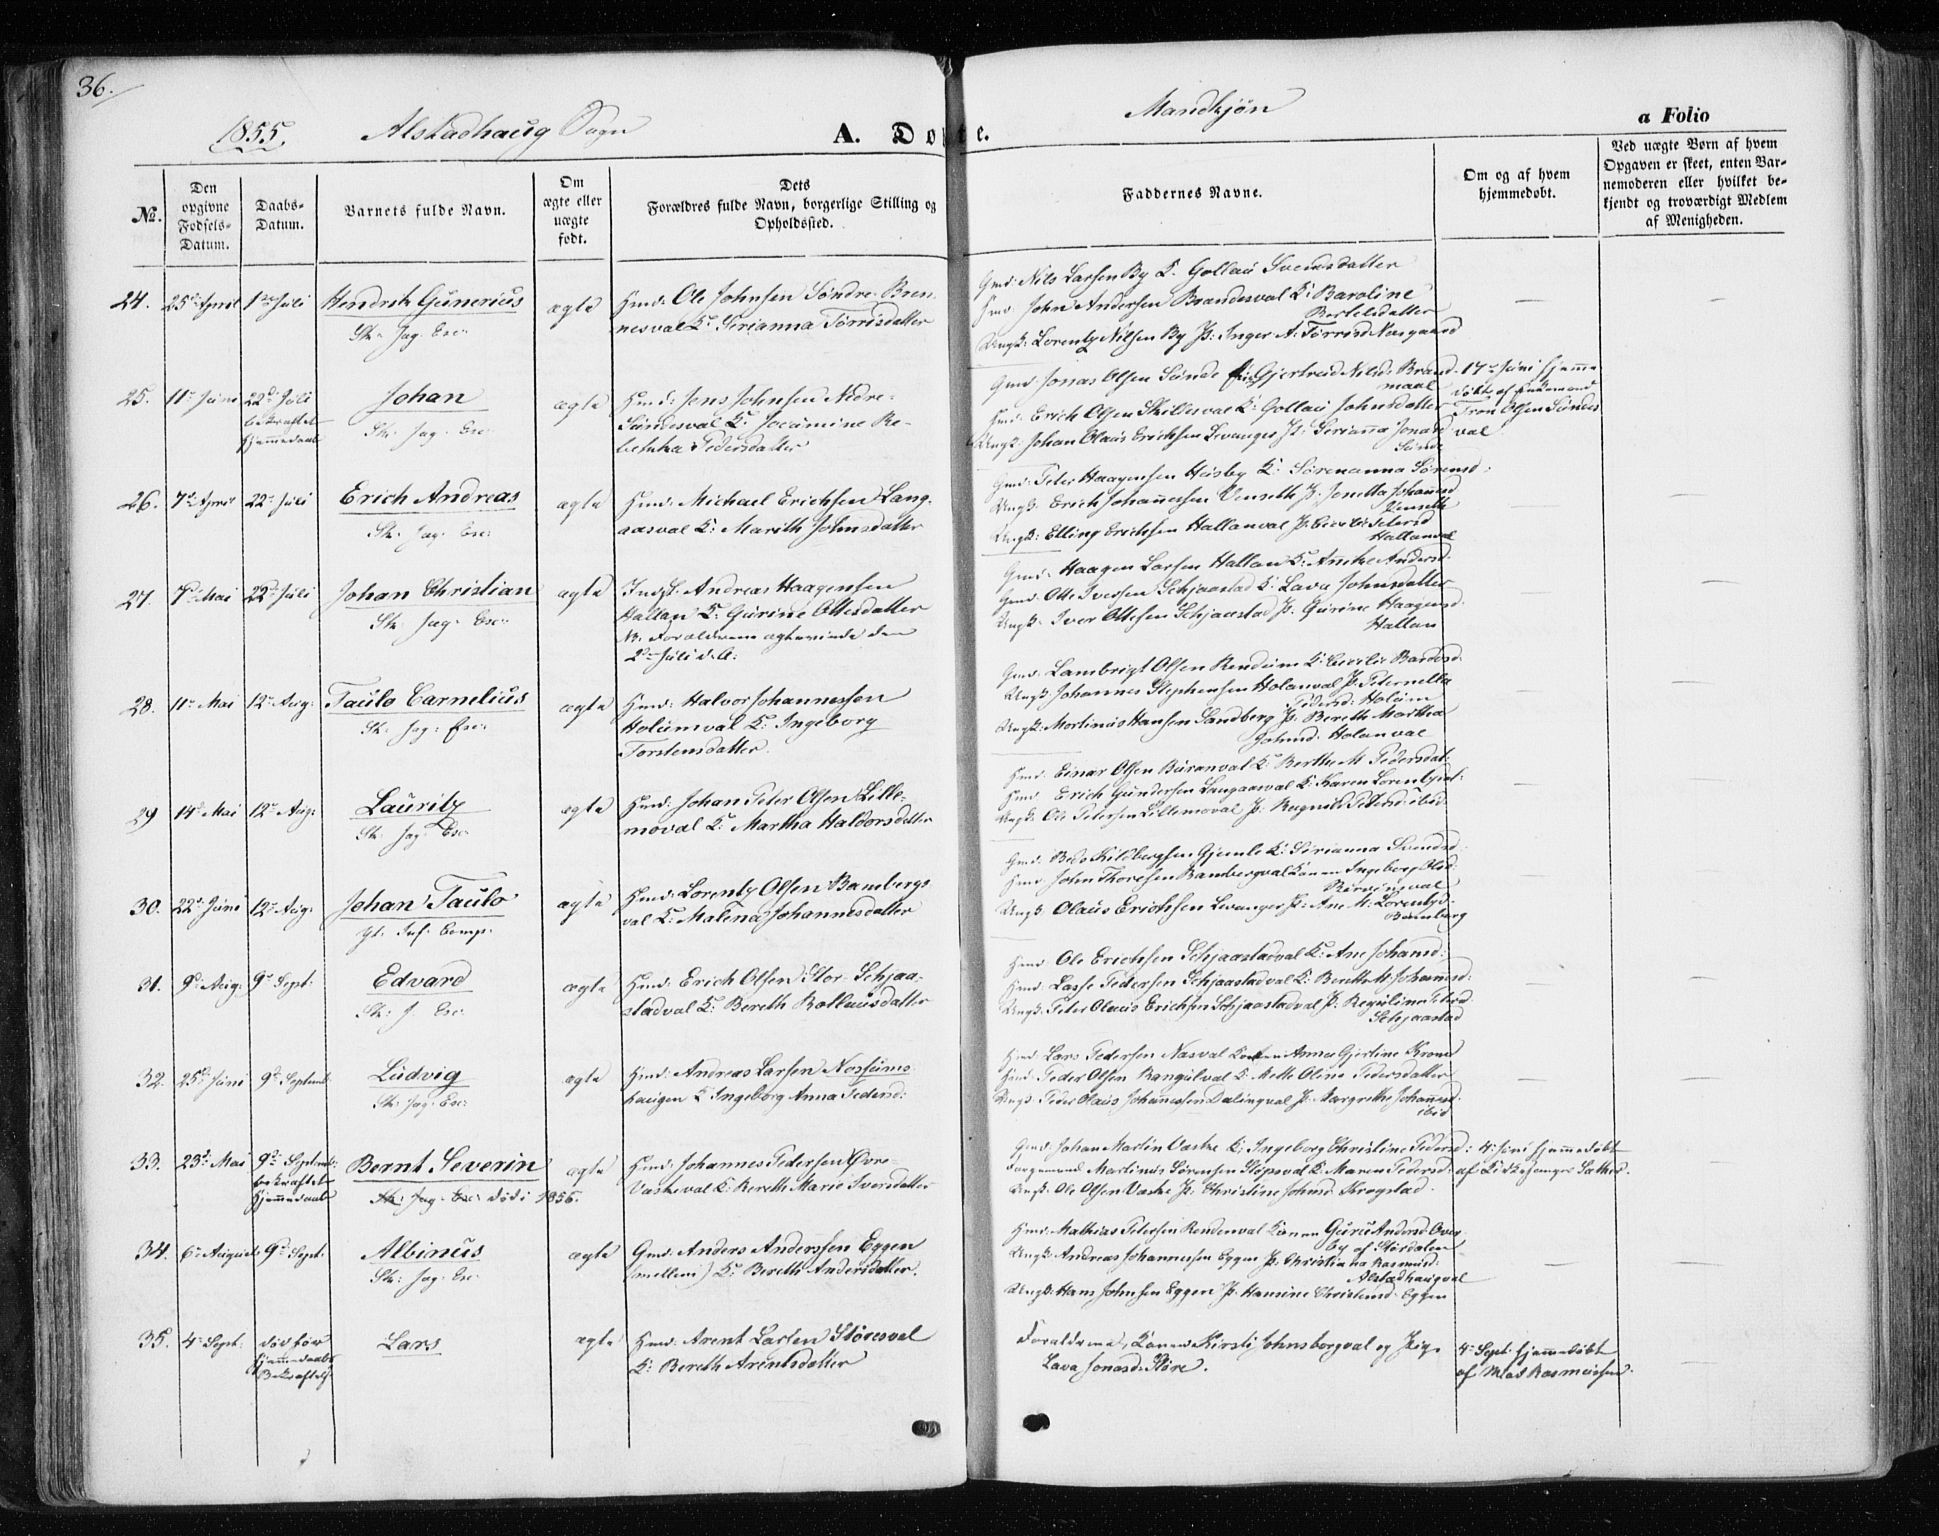 36.
1855. Alstadhaug Sogn
A. Døbte.
Mandkjøn
a Folio
No.
Den opgivne Fødsels-Datum.
Daabs-Datum.
Barnets fulde Navn.
Om ægte eller uægte født.
Dets Forældres fulde Navn, borgerlige Stilling og Opholdssted.
Faddernes Navne.
Om og af hvem hjemmedøbt.
Ved uægte Børn af hvem Opgaven er skeet, enten Barnemoderen eller hvilket bekjendt og troværdigt Medlem af Menigheden.
24. 25de April 1ste Juli Hendrik Gunerius ægte Hmd: Ole Johnsen Søndre Bren-
nesval K: Serianna Tørrisdatter
Sk: Jag: Esc:
Gmd: Nils Larsen By K: Gollau Svendsdatter
Hmd: John Andersen Brandesval K: Baroline
Bertelsdatter
Ungk: Lorentz Nilsen By P: Inger A. Tørrisd Næsgaard
25. 11te Juni 22de Juli Johan ægte Hmd: Jens Johnsen Nedre-
bekræftet
hjemmedaab
Sk: Jag: Esc:
Sundesval K: Jocumine Re-
bekka Pedersdatter
Gmd: Jonas Olsen Sunde Gjertrud Nilsd: Brand
Hmd: Erich Olsen Skillesval K: Gollau Johnsdatter
Ungk: Johan Olaus Erichsen Levanger P: Serianna Jonasd
Sunde
17de Juni hjemme
døbt af
Tron Olsen Sundes
val
26. 7de April 22de Juli Erich Andreas ægte Hmd: Michael Erichsen Lang-
aasval K: Marith Johnsdatter
Sk: Jag: Esc:
Gmd: Peter Haagensen Husby K: Sørenanna Sørensd:
Ungk: Erich Johannessen Venseth P: Jonetta Johannesd
Venseth
Ungk: Elling Erichsen Hallanval P: Petersd
Hallanval
27. 7de Mai 22de Juli Johan Christian ægte Inds: Andreas Haagensen
Hallan K: Gurine Ottesdatter
NB. Forældrene ægteviede den
2den Juli d. A.
Sk: Jag: Esc:
Gmd: Haagen Larsen Hallan K: Anne Andersd:
Gmd: Otte Iversen Schjaastad K: Lava Johnsdatter
Ungk: Iver Ottesen Schjaastad P: Gurine Haagensd
Hallan
28. 11te Mai 12te Aug: Paulo Cornelius ægte Hmd: Halvor Johannessen
Holumval K: Ingeborg
Torstensdatter.
Sk: Jag: Esc:
Gmd: Lambrigt Olsen Rendum K: Bardosd:
Ungk: Johannes Stephensen Holanval P: Peternella
Pedersd: Holum
Ungk: Martinus Hansen Sandberg P: Bereth Martha
Johnsd. Holanval
29 14de Mai 12te Aug: Lauritz ægte Hmd: Johan Peter Olsen Lille-
moval K: Martha Haldorsdatter
Sk: Jag: Esc:
Hmd: Einar Olsen Buranval K: Berthe M Pedersdat:
Hmd: Erich Gundersen Langaasval K: Karen Lorentzdat:
Ungk: Ole Petersen Lillemoval P: Ragnild Petersd: ibid:
30. 22de Juni 12te Aug: Johan Paulo ægte Hmd: Lorentz Olsen Bambergs
val K: Malena Johannesdatter
Inf: Comp:
Gmd: Kildbergsen Gjemle K: Serianna Svendsd:
Hmd: John Thoresen Bambergval Konen Ingeborg Olsd:
Ungk: Olaus Erichsen Levanger P: Ane M: Lorentzd:
Bamberg
31. 9de Aug: 9de Sept: Edvard ægte Hmd: Erich Olsen Stor Schjaa-
stadval K: Bereth Rollausdatter
Sk: J Esc:
Hmd: Ole Erichsen Schjaastadval K: Ane Johansd:
Hmd: Lasse Pedersen Schjaastadval K: Bereth M Johannesd:
Ungk: Peter Olaus Erichsen Schjaastadval P: Regulina Petersd
Schjaastad
32. 25de Juni 9de Septemb: Ludvig ægte Hmd: Andreas Larsen Nossums
haugen K: Ingeborg Anna Pedersd:
Sk: Jag: Esc:
Hmd: Lars Pedersen Nasval Konen Anna Gjertine
Hmd: Peder Olsen Rangulval K: Mette Oline Pedersdatter
Ungk: Peder Olaus Johannessen Dalingval P: Margrethe Johannesd:
ibid
33. 23de Mai 9de Septemb: Bernt Severin ægte Hmd: Johannes Pedersen Øvre-
bekræftet
hjemmedaab
Vaskeval K: Bereth Marie Iversdatter
Sk: Jag: Esc: død i 1856.
Gmd: Johan Martin Vaske K: Ingeborg Christine Pedersd:
Forgemand Martinus Sørensen Sløpsval K: Maren Pedersd:
Ungk: Ole Olsen Vaske P: Christine Johnsd: Krogstad.
4de Juni hjemmedøbt
af Kirkesanger Sather
34. 6te August 9de Sept: Albinus ægte Gmd: Anders Anderssen Eggen
(mellem) K: Bereth Andersdatter.
Sk: Jag: Esc:
Hmd: Mathias Petersen Rendenval Konen Guru Andersd Over
by af Størdalen
Ungk: Andreas Johannessen Eggen P: Christianna Rasmusd:
Alstadhaugval
Ungk: Hans Johnsen Eggen P: Hansine Christensd: Eggen
35. 4de Sept: død før
hjemmedaabs
Bekræftels
Lars ægte Hmd: Arent Larsen Støresval
K: Bereth Arentsdatter
Forældrene, Konen Kirsti Johnsborgval og Pige
Lava Jonasd: Støre.
4de Sept: hjemmedøbt
af Mad Rasmussen.